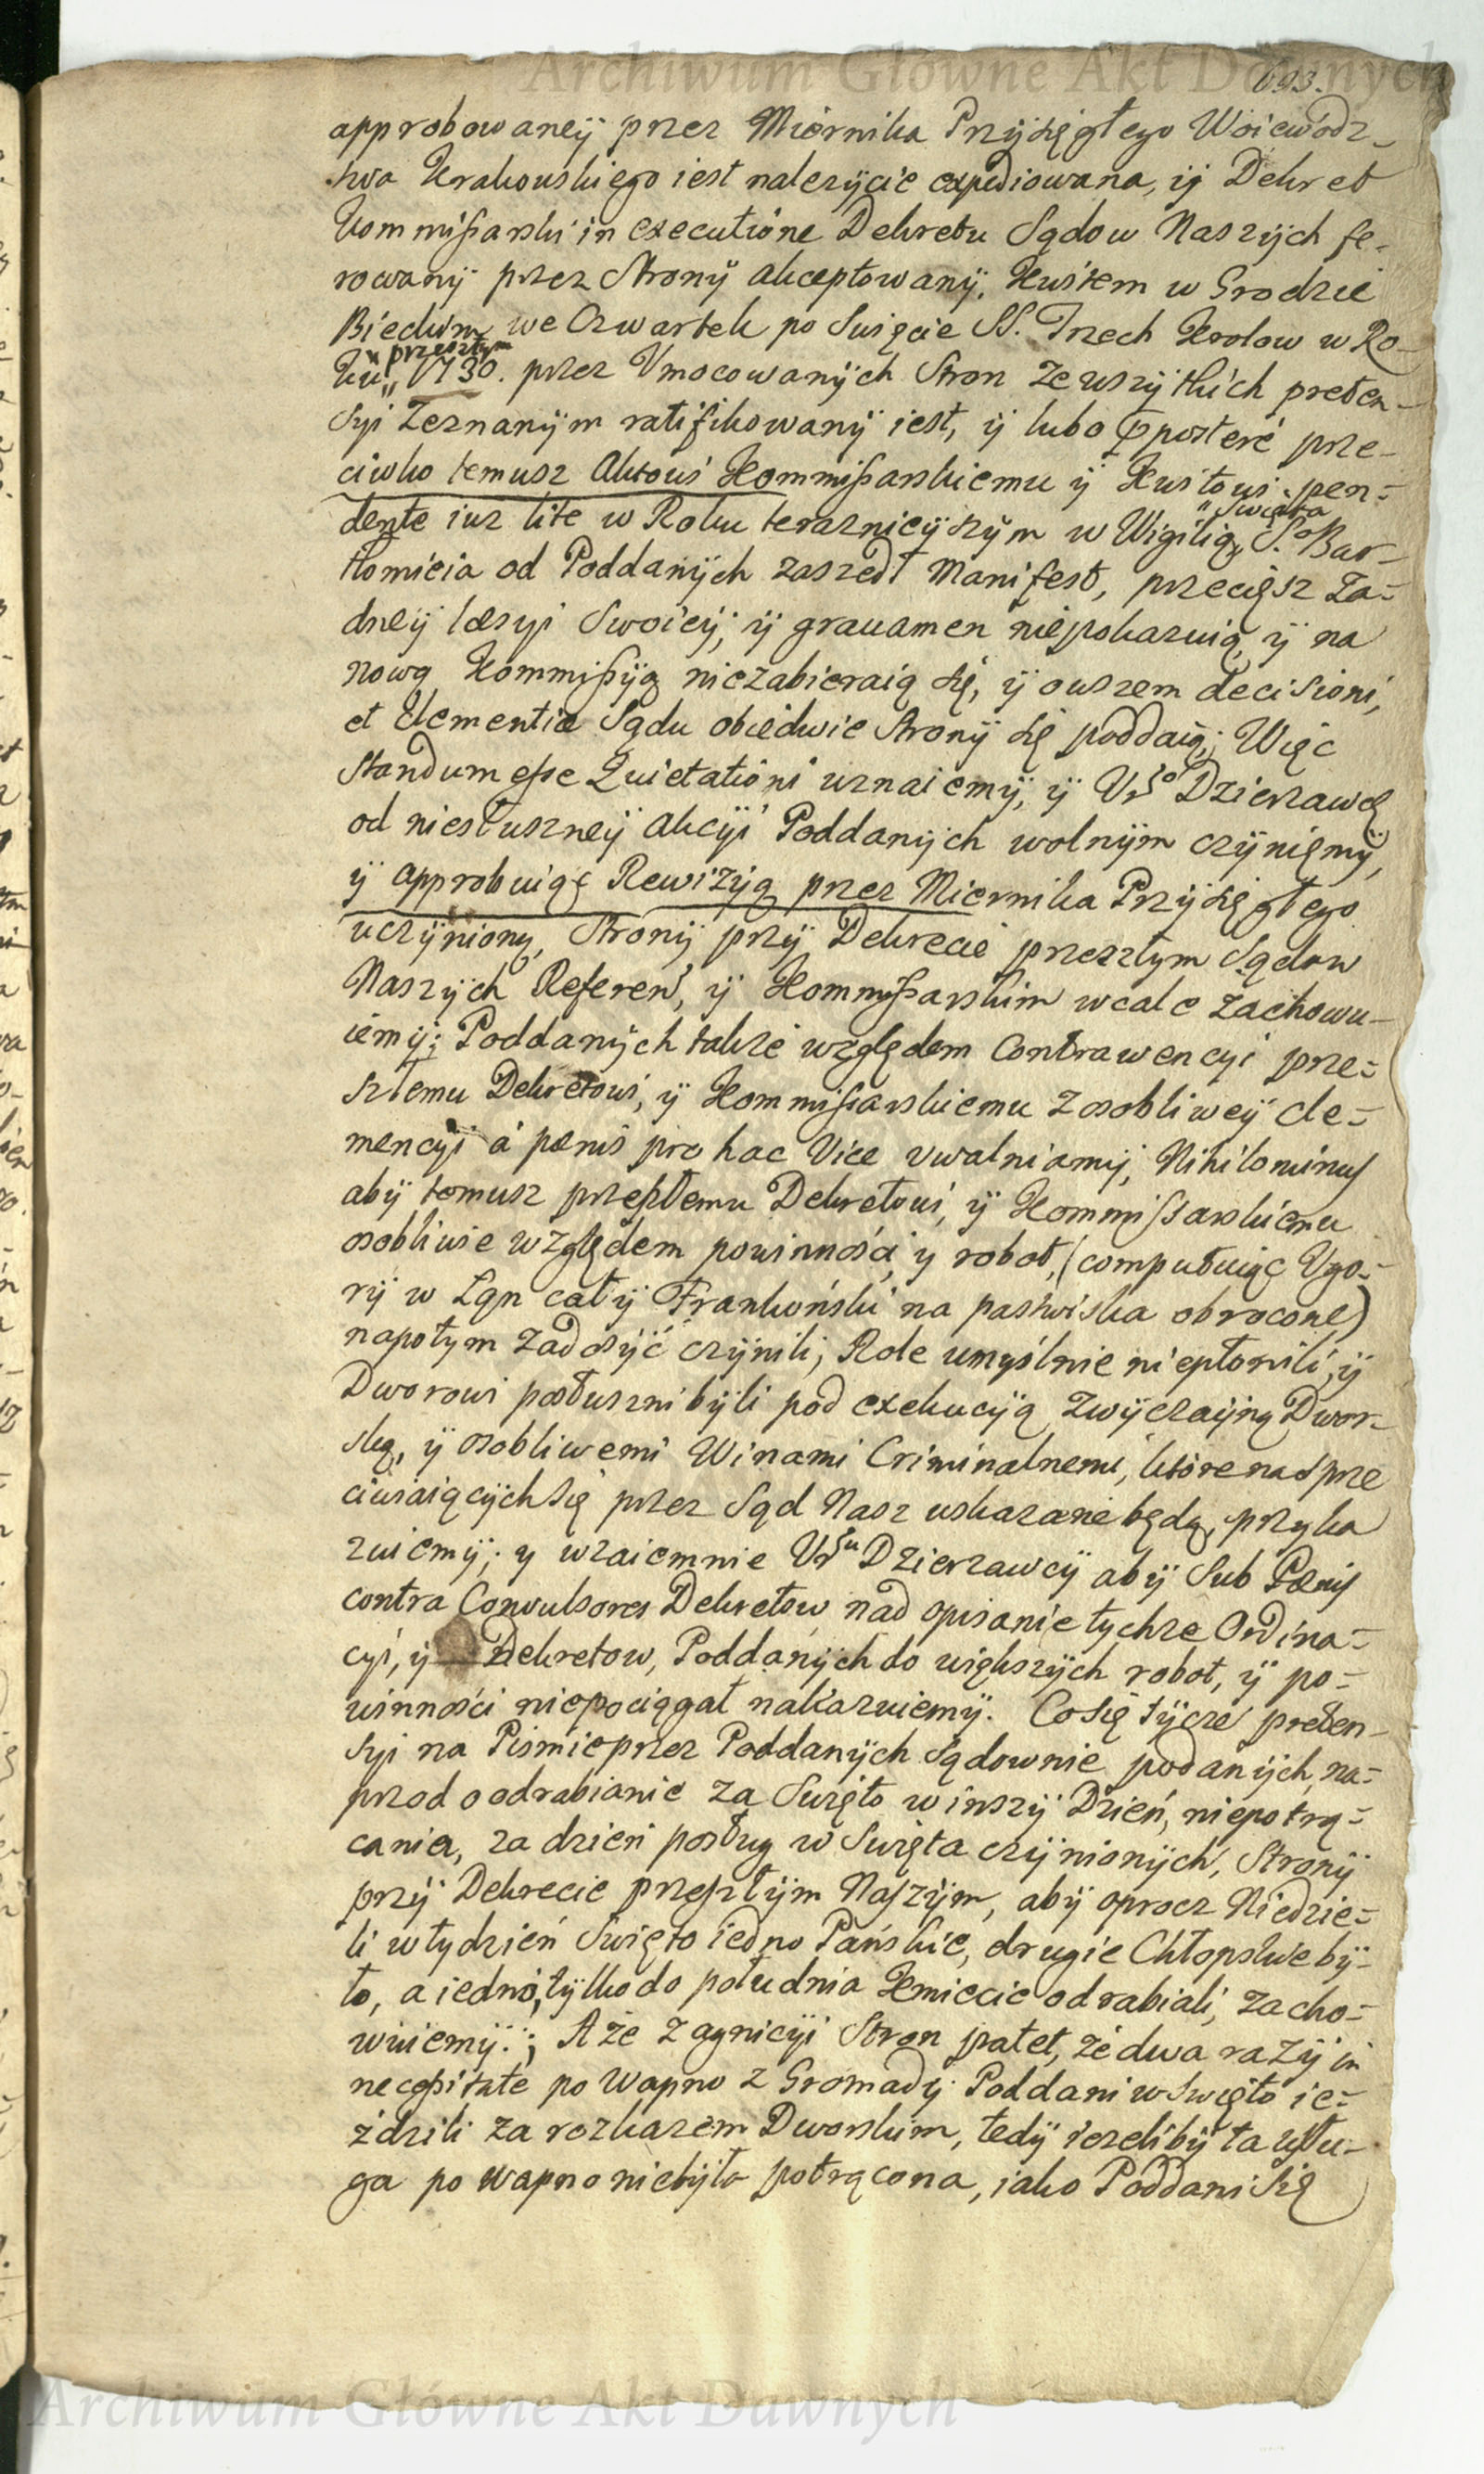 Archiwum Główne Akt Dawnych
693.
approbowaneÿ przez Miernika Przÿsięgłego Woiewodz-
twa Krakowskiego iest należÿcie expediowana, ÿ Dekret
Kommißarski in executione Dekretu Sądow Naszÿch fe-
rowanÿ przez Stronÿ akceptowanÿ, Kwitem w Grodzie
Bieckim we Czwartek po Swięcie SS. Trzech Krolow w Ro-
przeszłym
ku 1730. przez Vmocowanÿch Stron ze wszÿtkich preten-
syi zeznanÿm ratifikowanÿ iest, ÿ lubo ex post eré prze-
ciwko temusz Aktowi Kommißarskiemu ÿ Kwitowi pen-
Swięta
dente iuz lite w Roku teraznieÿszÿm w Wigilią S. Bar-
tłomieia od Poddanÿch zaszedł Manifest, przecięsz ża-
dneÿ læsyi Swoieÿ, ÿ gravamen niepokazuią, ÿ na
nową Kommißÿą niezabieraią się, ÿ owszem decisioni,
et clementiæ Sądu obiedwie Stronÿ się poddaią; Więc
Standum eße Quietationi uznaiemÿ, ÿ Vrgo Dzierzawcę
od niesłuszneÿ akcÿi Poddanÿch wolnÿm czÿniemÿ,
ÿ approbuiąc Rewizÿą przez Miernika Przÿsięgłego
uczÿnioną, Stronÿ przÿ Dekrecie przeszłym Sądow
Naszÿch Referen, ÿ Kommißarskim wcale zachowu-
iemÿ; Poddanÿch także względem Contrawencyi prze-
szłemu Dekretowi, ÿ Kommißarskiemu z osobliweÿ cle-
mencÿi á pænis pro hac Vice vwalniamÿ, Nihilominus
abÿ temusz przeszłemu Dekretowi, ÿ Kommißarskiemu
osobliwie względem powinności, y robot, (computuiąc Vgo-
rÿ w Łgn całÿ Frankoński na pastwiska obrocone)
napotym zadosÿć czÿnili, Role umyślnie niepłonili, ÿ
Dworowi posłuszni bÿli pod exekucÿą zwÿczaÿną Dwor-
ską, ÿ osobliwemi Winami Criminalnemi, ktore na sprze
ciwiaiącÿch się przez Sąd Nasz wskazane będą, przyka
zuiemÿ; y wzaiemnie Vrmu Dzierzawcÿ abÿ Sub Pænis
contra Convulsores Dekretow, nad opisanie tychże Ordina-
cyi, ÿ Dekretow, Poddanÿch do większÿch robot, ÿ po-
winności niepociągał nakazuiemÿ. Co się tÿcze preten-
syi na Pismie przez Poddanÿch sądownie podanÿch, na-
przod o odrabianie za Swięto w inszÿ Dzień, niepotrą-
cania, za dzień posług w Swięta czÿnionÿch, Stronÿ
przÿ Dekrecie przeszłÿm Naszÿm, abÿ oprocz Niedzie-
li w tydzień Swięto iedno Pańskie, drugie Chłopskie bÿ-
ło, a iedno, tÿlko do południa Kmiecie odrabiali, zacho-
wuiemÿ; A że z agnicÿi Stron patet, że dwa razÿ in
necessitate po Wapno z Gromadÿ Poddani w Swięto ie-
ździli za rozkazem Dworskim, tedÿ ieżelibÿ ta usłu-
ga po wapno niebÿła potrącona, iako Poddani się
Archiwum Główne Akt Dawnych